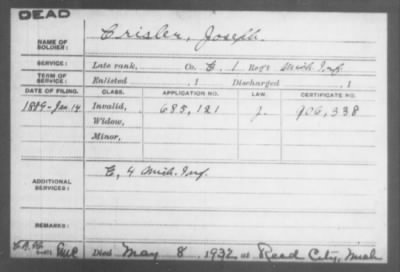 DEAD
NAME OF SOLDIER: Crisler, Joseph.
SERVICE: Late rank, Co. E, 1 Reg't Mich. Inf.
TERM OF SERVICE: Enlisted , 1 Discharged , 1
DATE OF FILING. CLASS. APPLICATION NO. LAW. CERTIFICATE NO.
1889-Jan 14 Invalid, 685,121 J. 906,338
Widow,
Minor,
ADDITIONAL SERVICES: E, 4 Mich. Inf.
REMARKS:
Died May 8, 1932 at Reed City, Mich